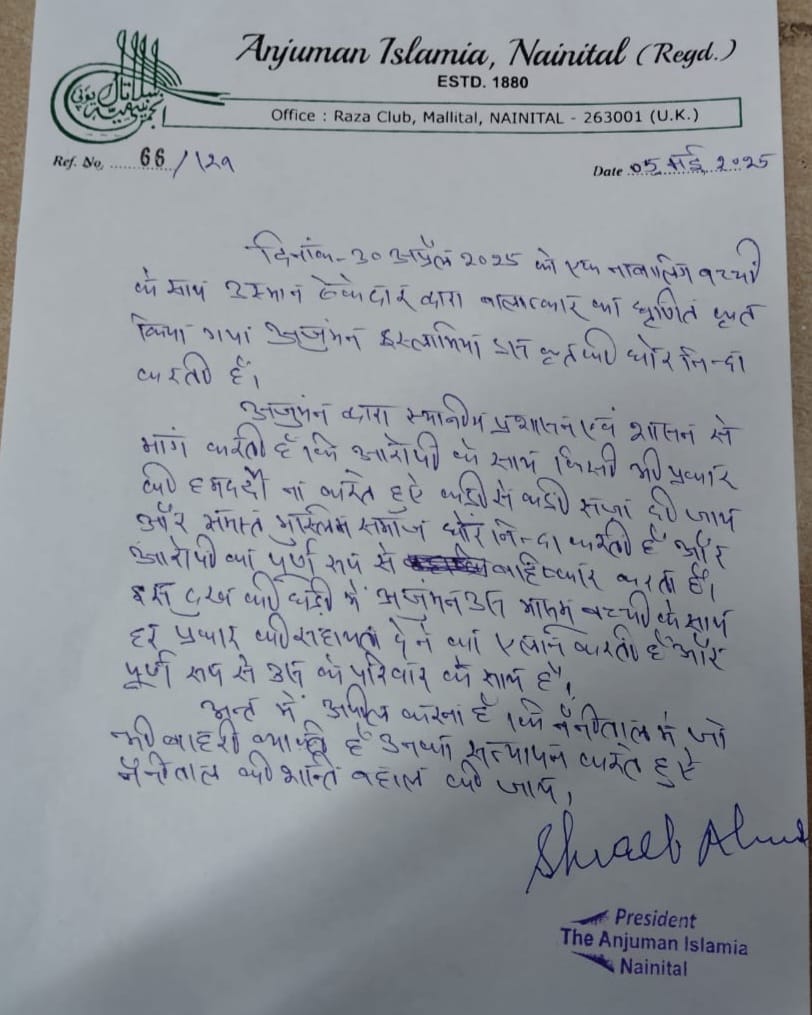 Anjuman Islamia, Nainital (Regd.)
ESTD. 1880
Office : Raza Club, Mallital, NAINITAL - 263001 (U.K.)
Ref. No. 66/129
Date 05 मई 2025
दिनांक-30 अप्रैल 2025 को एक नाबालिग बच्ची
के साथ उस्मान ठेकेदार द्वारा बलात्कार का घृणित कृत
किया गया अंजुमन इस्लामिया इस कृत की घोर निन्दा
करती है।
अंजुमन द्वारा स्थानीय प्रशासन एवं शासन से
मांग करती है कि आरोपी के साथ किसी भी प्रकार
की हमदर्दी ना करते हुऐ कड़ी से कड़ी सजा दी जाय
और समस्त मुस्लिम समाज घोर निन्दा करती है और
आरोपी का पूर्ण रूप से बहिष्कार करता है।
इस दुख की घड़ी में अंजुमन उस मासूम बच्ची के साथ
हर प्रकार की सहायता देने का एलान करती है और
पूर्ण रूप से उस के परिवार के साथ है।
अन्त में अपील करना है कि नैनीताल में जो
भी बाहरी व्यक्ति है उनका सत्यापन करते हुऐ
नैनीताल की शान्ति बहाल की जाय,
Shoaeb
President
The Anjuman Islamia
Nainital